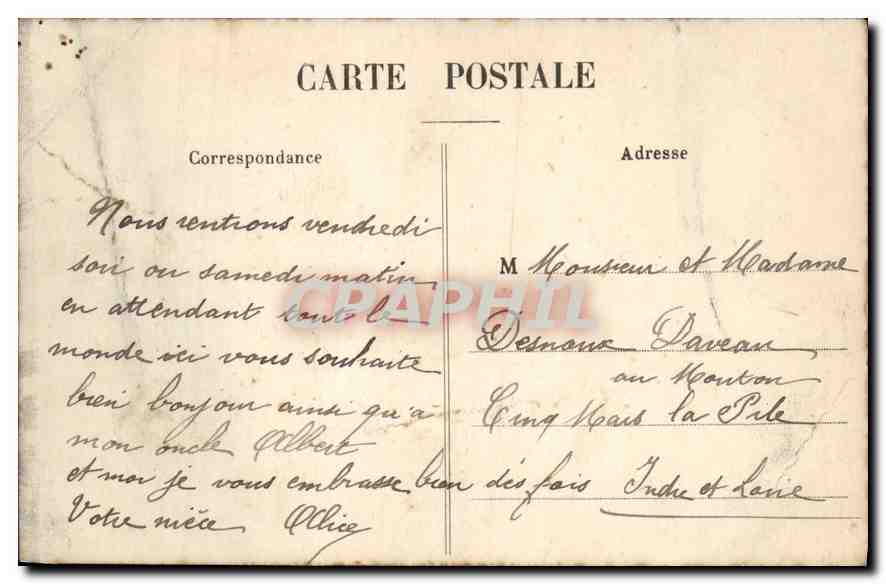 CARTE POSTALE
Correspondance
Nous rentrons vendredi
soir ou samedi matin
en attendant tout le
monde ici vous souhaite
bien bonjour ainsi qu'à
mon oncle Albert
et moi je vous embrasse bien dés fois
Votre nièce Alice
Adresse
M Monsieur et Madame
Desnoux Daveau
au Mouton
Cinq Mars la Pile
Indre et Loire
CPAPHIL